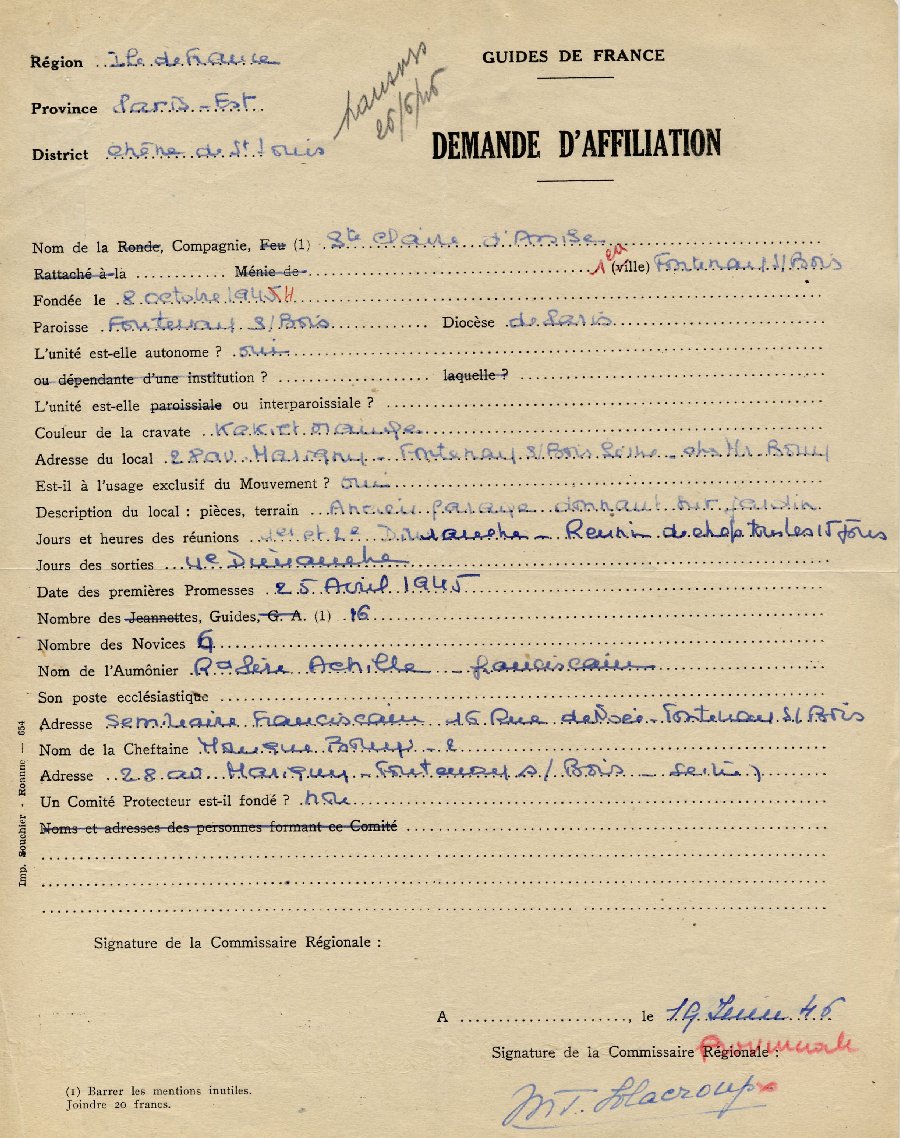 GUIDES DE FRANCE
Région Ile de France
Province Paris-Est
25/6/46
District Chêne de St Louis
DEMANDE D'AFFILIATION
Nom de la Ronde, Compagnie, Feu (1) Ste Claire d'Assise
Rattaché à la Ménie de (ville) Fontenay S/Bois
Fondée le 8 octobre 1945
Paroisse Fontenay S/Bois Diocèse de Paris
L'unité est-elle autonome ? oui
ou dépendante d'une institution ? laquelle ?
L'unité est-elle paroissiale ou interparoissiale ?
Couleur de la cravate Kaki et orange
Adresse du local 28 av. Marigny - Fontenay S/Bois Seine - chez Mr
Est-il à l'usage exclusif du Mouvement ? oui
Description du local : pièces, terrain Ancien garage donnant sur jardin
Jours et heures des réunions 1er et 2e Dimanche - Réunion de chefs tous les 15 jours
Jours des sorties 4e Dimanche
Date des premières Promesses 25 Avril 1945
Nombre des Jeannettes, Guides, G. A. (1) 16
Nombre des Novices 6
Nom de l'Aumônier Rd Père Achille - franciscain
Son poste ecclésiastique
Adresse Séminaire Franciscain 16 Rue de Fontenay S/Bois
Nom de la Cheftaine
Adresse 28 av. Marigny - Fontenay s/Bois - Seine
Un Comité Protecteur est-il fondé ? non
Noms et adresses des personnes formant ce Comité
Imp. Souchier - Roanne — 654
Signature de la Commissaire Régionale :
A , le 19 Juin 46
Signature de la Commissaire Régionale : Provinciale
(1) Barrer les mentions inutiles.
Joindre 20 francs.